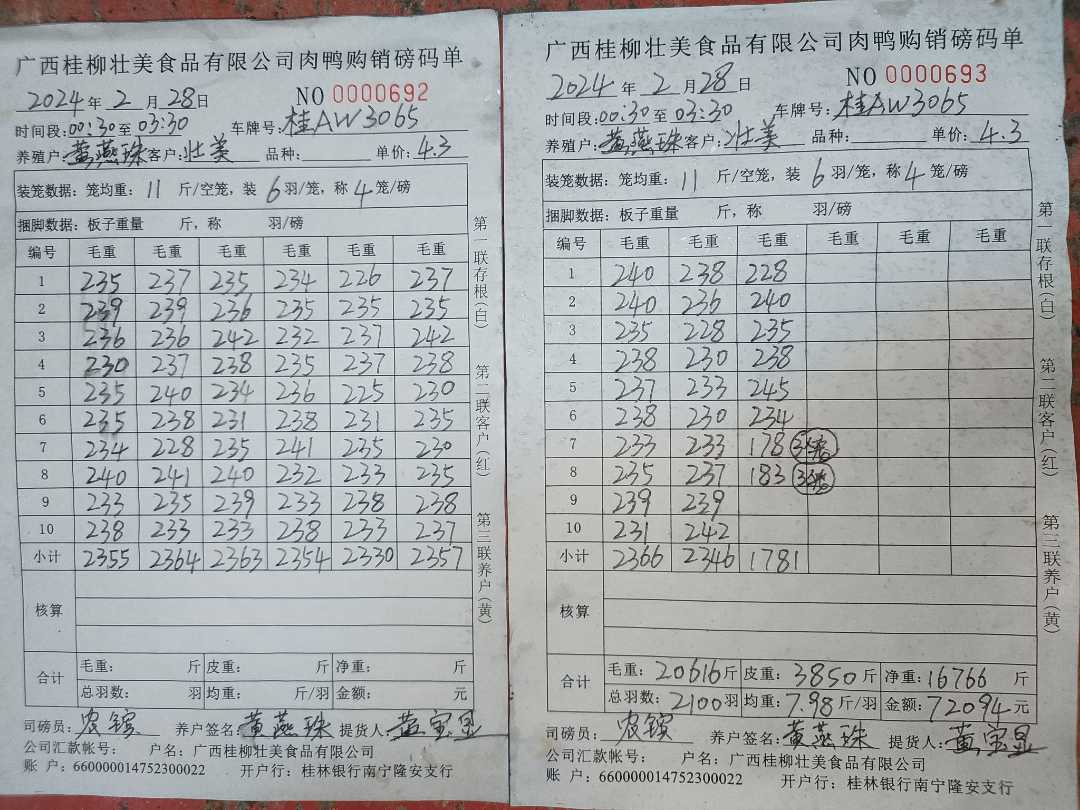 广西桂柳壮美食品有限公司肉鸭购销磅码单
2024年2月28日 NO 0000692
时间段:00:30至03:30 车牌号:桂AW3065
养殖户:黄燕珠客户:壮美 品种: 单价:4.3
装笼数据:笼均重:11 斤/空笼,装6羽/笼,称4笼/磅
捆脚数据:板子重量 斤,称 羽/磅
编号 毛重 毛重 毛重 毛重 毛重 毛重
1 235 237 235 234 226 237
2 239 239 236 235 235 235
3 236 236 242 232 237 242
4 230 237 238 235 237 238
5 235 240 234 236 225 230
6 235 238 231 238 231 235
7 234 228 235 241 235 230
8 240 241 240 232 233 235
9 233 235 239 233 238 238
10 238 233 233 238 233 237
小计 2355 2364 2363 2354 2330 2357
核算
合计 毛重: 斤 皮重: 斤 净重: 斤
总羽数: 羽 均重: 斤/羽 金额: 元
司磅员:农镔 养户签名:黄燕珠 提货人:黄宝显
公司汇款帐号: 户名:广西桂柳壮美食品有限公司
账 户:660000014752300022 开户行:桂林银行南宁隆安支行
第一联存根(白) 第二联客户(红) 第三联养户(黄)
广西桂柳壮美食品有限公司肉鸭购销磅码单
2024年2月28日 NO 0000693
时间段:00:30至03:30 车牌号:桂AW3065
养殖户:黄燕珠客户:壮美 品种: 单价:4.3
装笼数据:笼均重:11 斤/空笼,装6羽/笼,称4笼/磅
捆脚数据:板子重量 斤,称 羽/磅
编号 毛重 毛重 毛重 毛重 毛重 毛重
1 240 238 228
2 240 236 240
3 235 228 235
4 238 230 238
5 237 233 245
6 238 230 234
7 233 233 178 3笼
8 235 237 183 3笼
9 239 239
10 231 242
小计 2366 2346 1781
核算
合计 毛重:20616斤 皮重:3850斤 净重:16766 斤
总羽数:2100羽 均重:7.98斤/羽 金额:72094元
司磅员:农镔 养户签名:黄燕珠 提货人:黄宝显
公司汇款帐号: 户名:广西桂柳壮美食品有限公司
账 户:660000014752300022 开户行:桂林银行南宁隆安支行
第一联存根(白) 第二联客户(红) 第三联养户(黄)